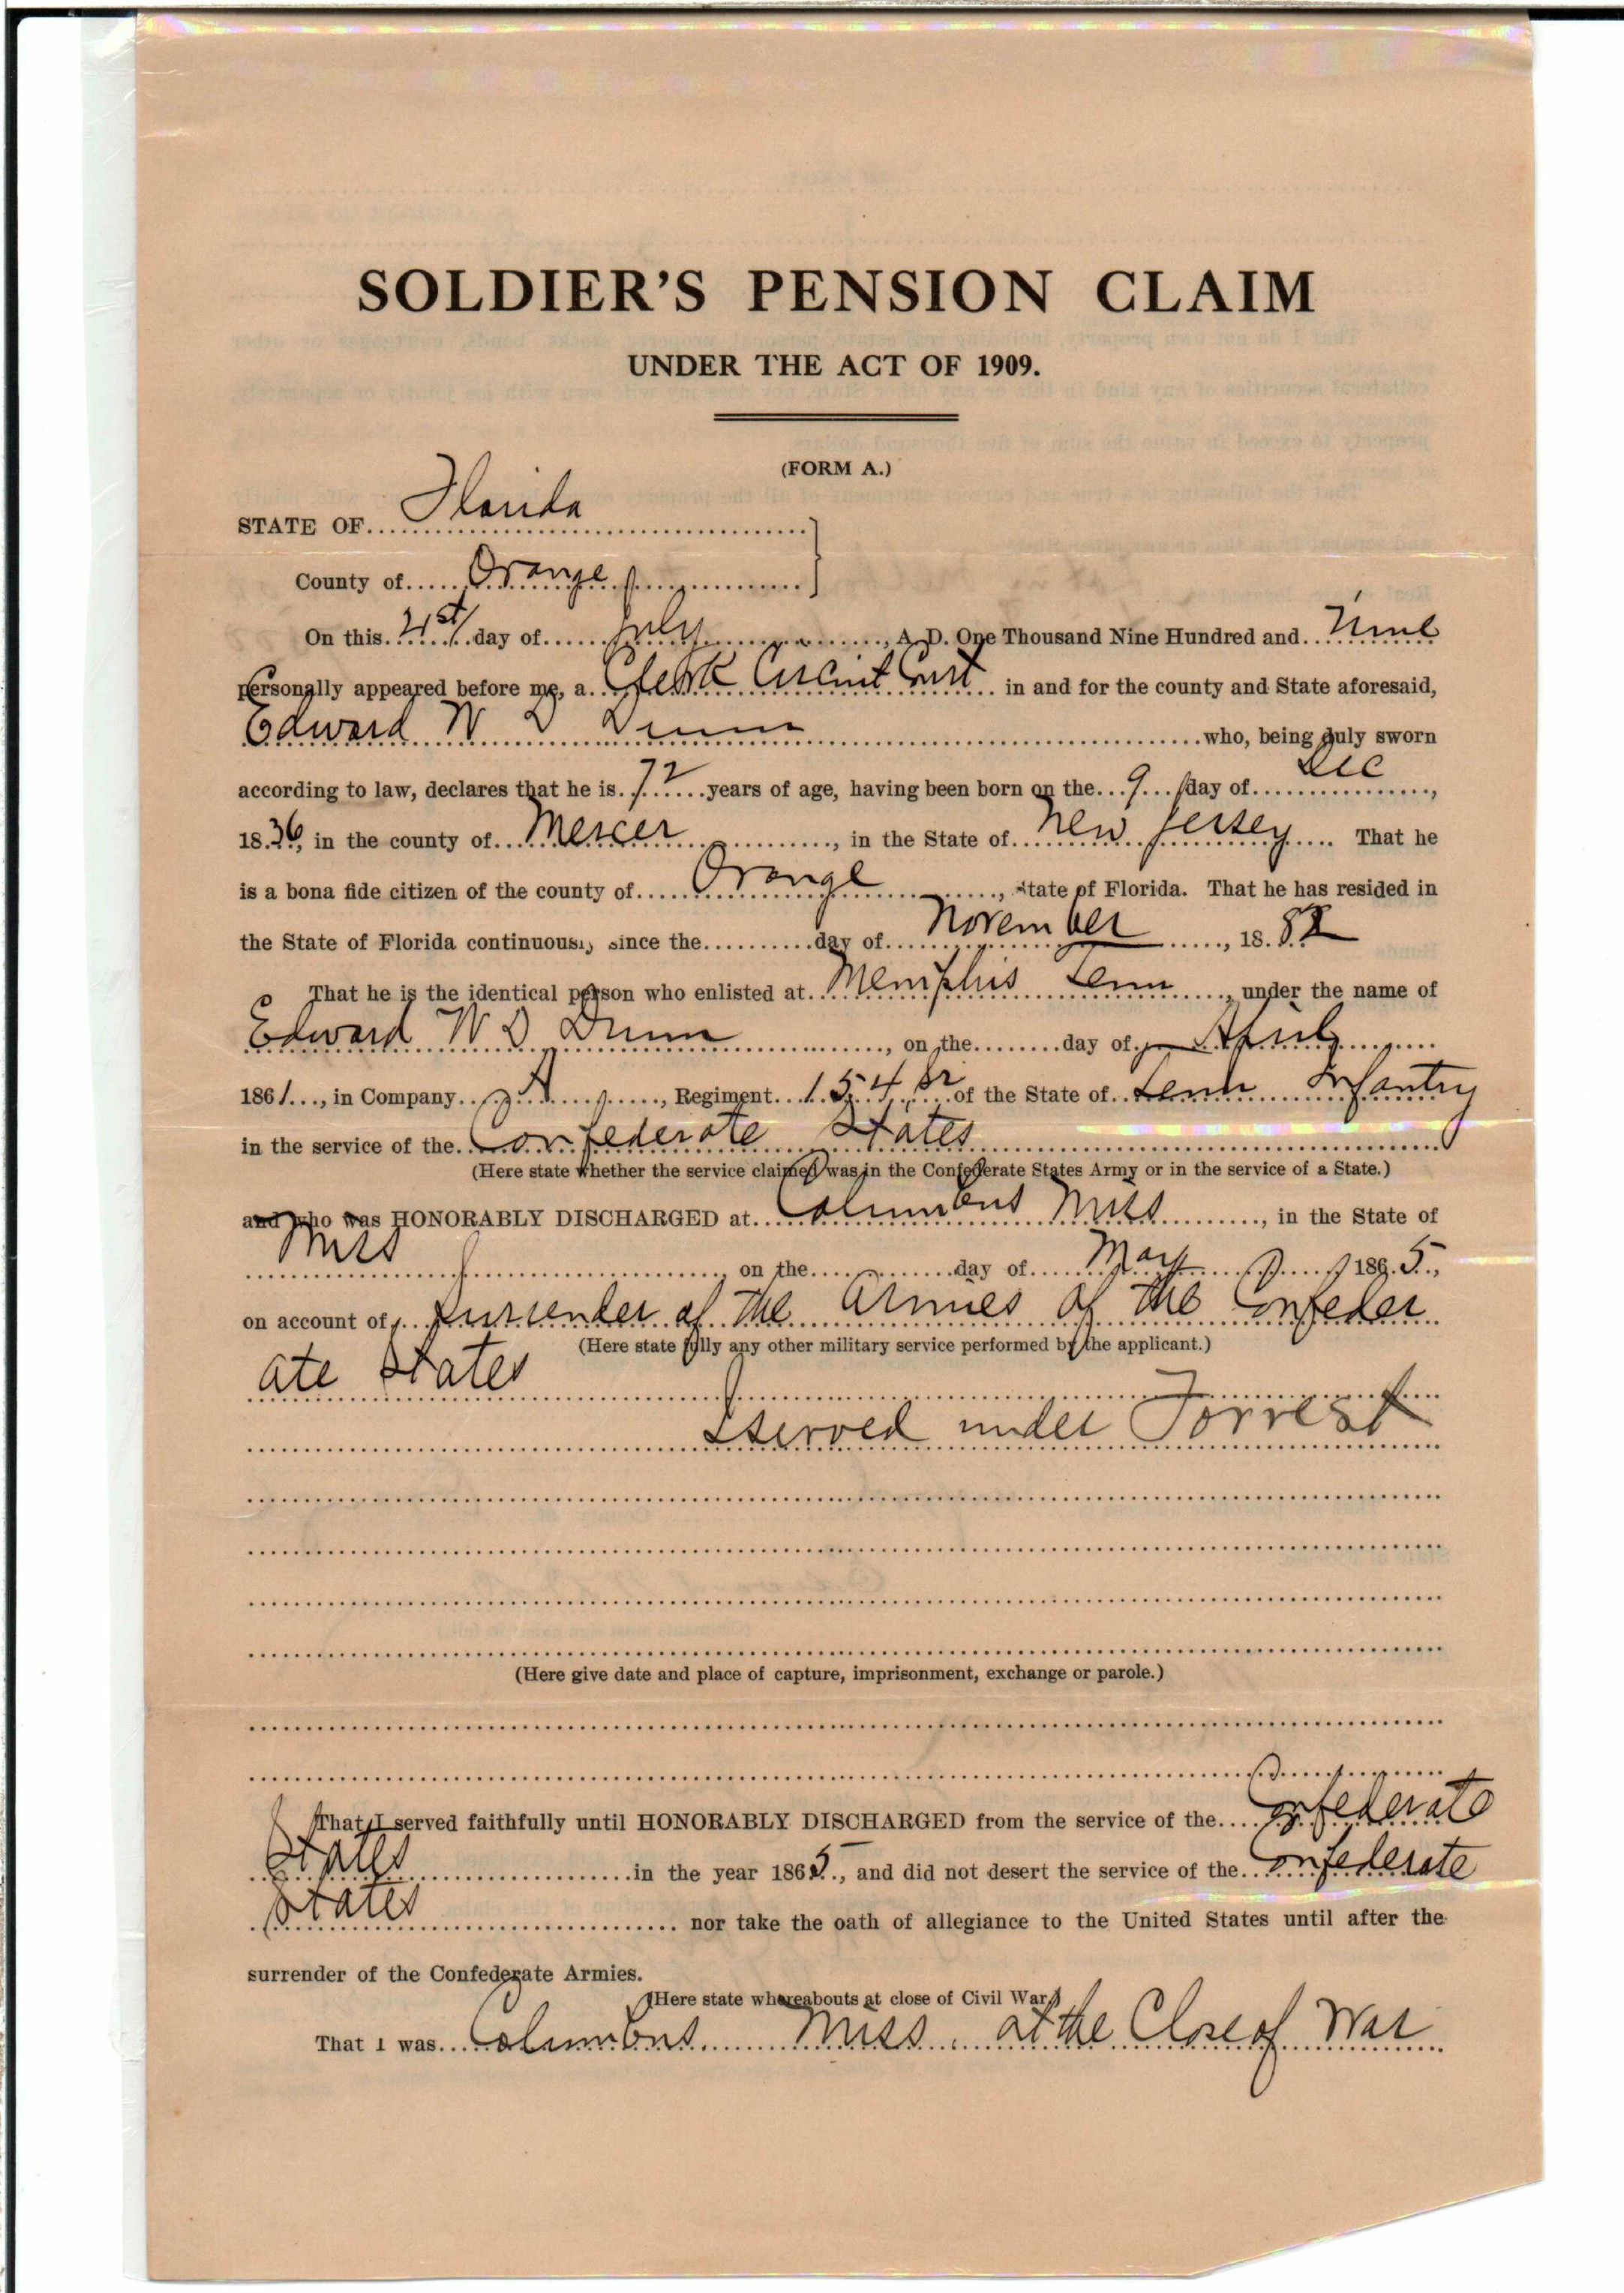 SOLDIER'S PENSION CLAIM
UNDER THE ACT OF 1909.
(FORM A.)
STATE OF Florida
County of Orange
On this 21st day of July, A. D. One Thousand Nine Hundred and Nine
personally appeared before me, a Clerk Circuit Court in and for the county and State aforesaid,
Edward W D Dunn who, being duly sworn
according to law, declares that he is 72 years of age, having been born on the 9 day of Dec,
1836, in the county of Mercer, in the State of New Jersey. That he
is a bona fide citizen of the county of Orange, State of Florida. That he has resided in
the State of Florida continuously since the day of November, 1882
That he is the identical person who enlisted at Memphis Tenn, under the name of
Edward W D Dunn, on the day of April
1861, in Company A, Regiment 154 Sr of the State of Tenn Infantry
in the service of the Confederate States
(Here state whether the service claimed was in the Confederate States Army or in the service of a State.)
and who was HONORABLY DISCHARGED at Columbus Miss, in the State of
Miss, on the day of May 1865,
on account of Surrender of the Armies of the Confeder
(Here state fully any other military service performed by the applicant.)
ate States
Served under Forrest
(Here give date and place of capture, imprisonment, exchange or parole.)
That I served faithfully until HONORABLY DISCHARGED from the service of the Confederate
States in the year 1865, and did not desert the service of the Confederate
States nor take the oath of allegiance to the United States until after the
surrender of the Confederate Armies.
(Here state whereabouts at close of Civil War.)
That I was Columbus Miss. at the Close of War